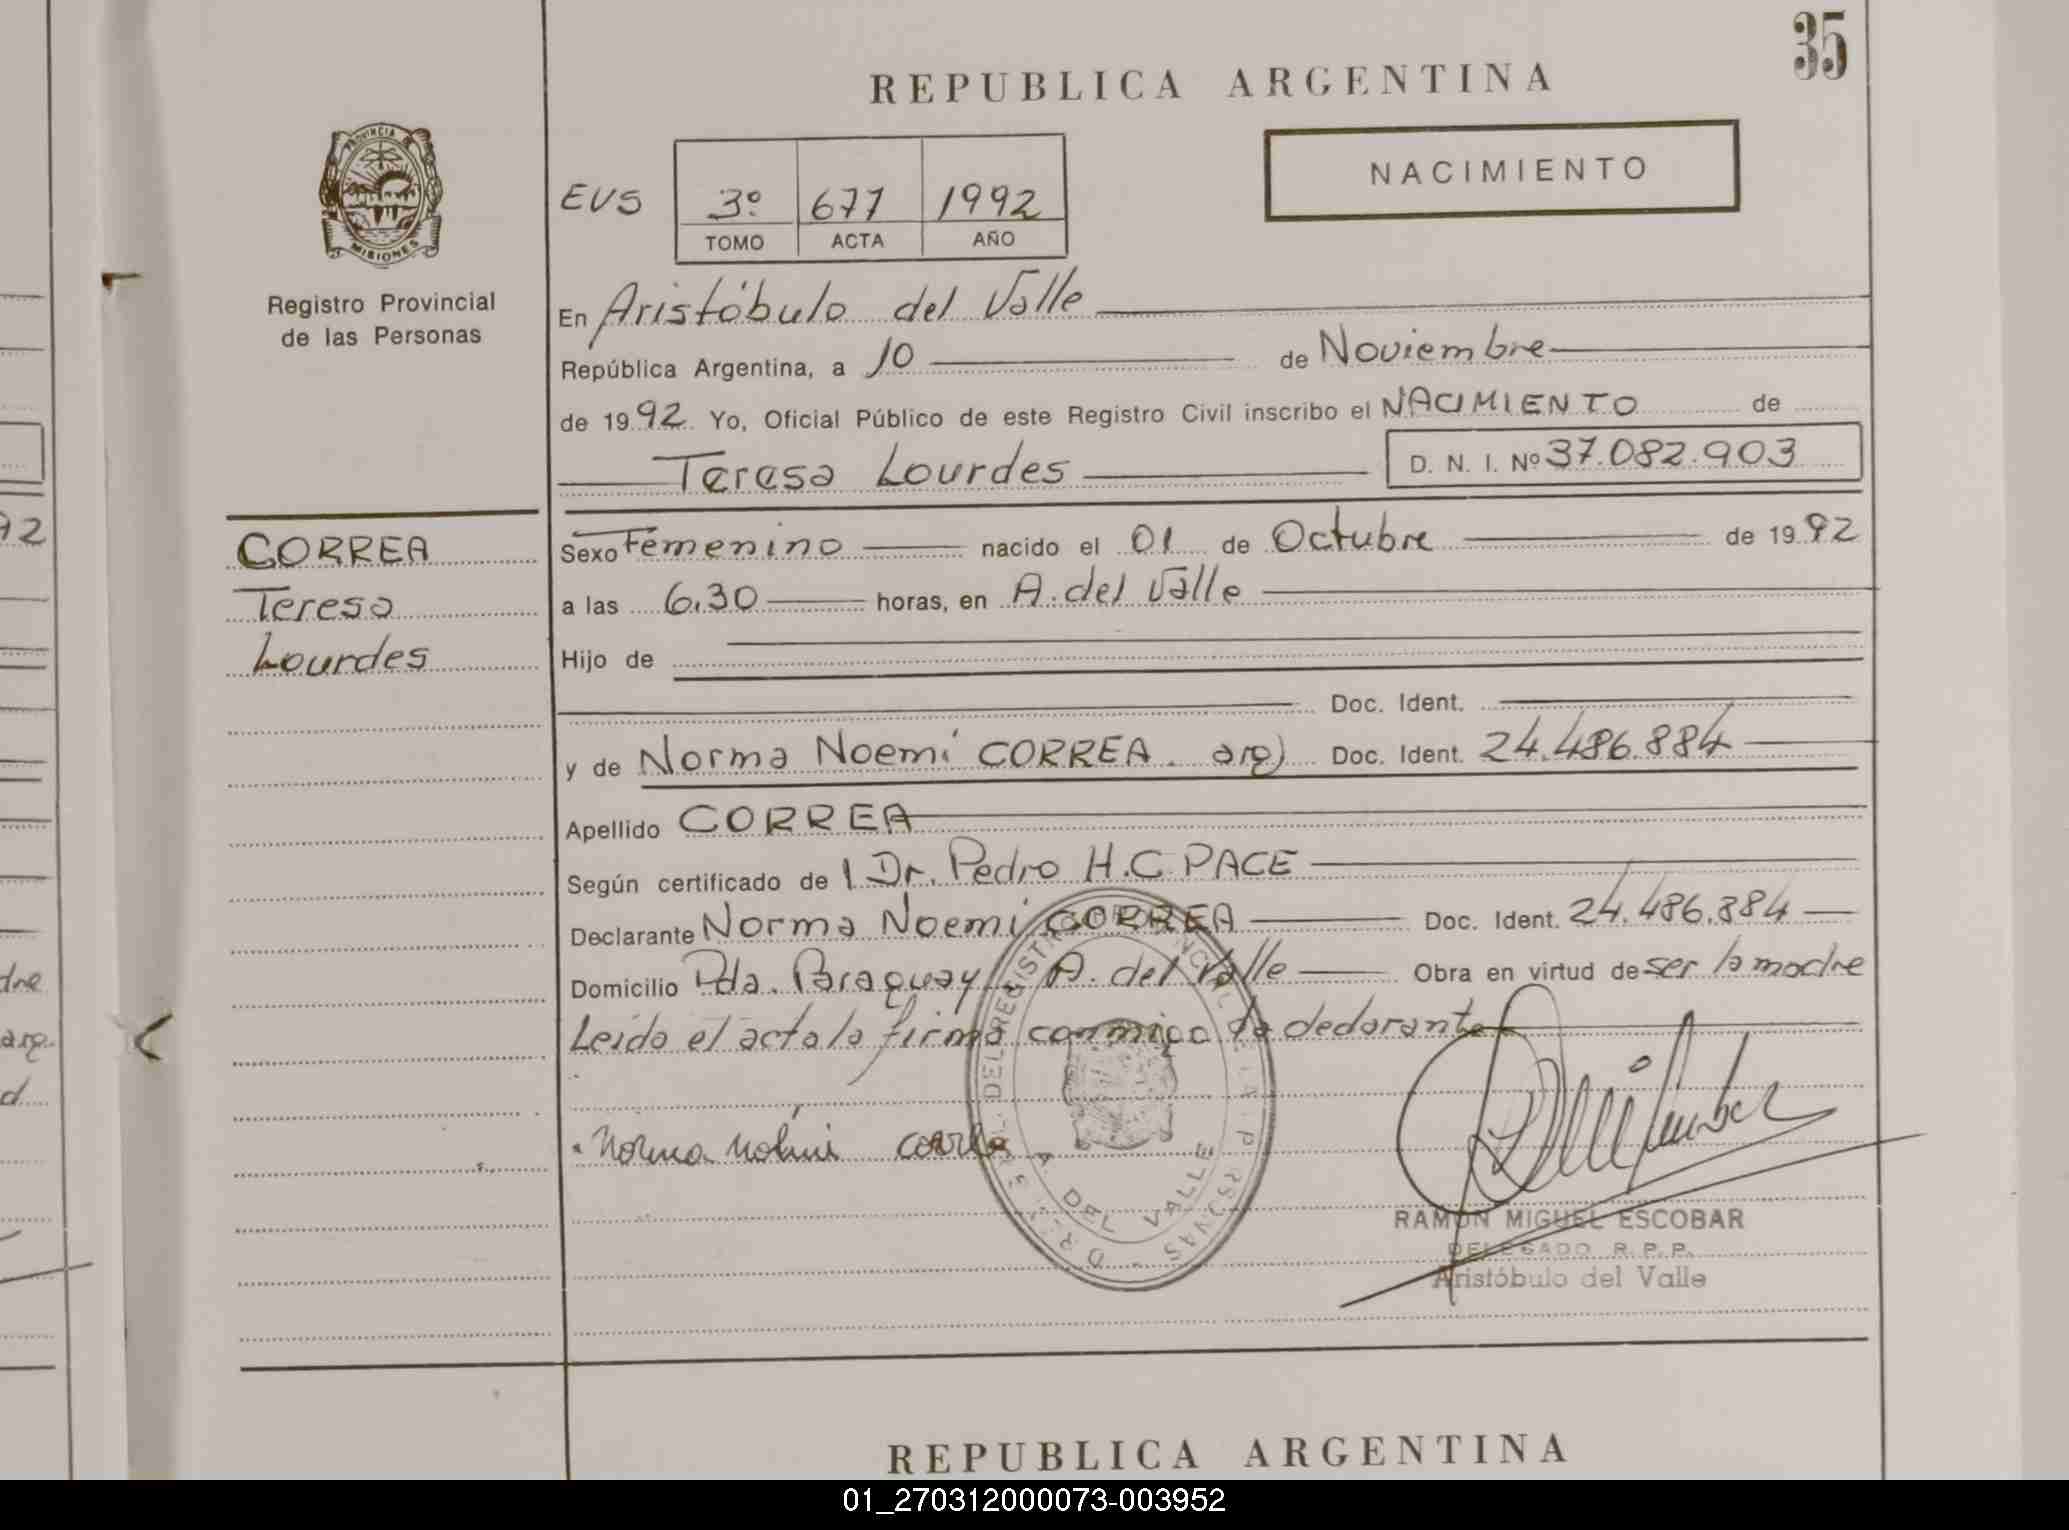 35
REPUBLICA ARGENTINA
NACIMIENTO
EVS 3º 677 1992
TOMO ACTA AÑO
PROVINCIA DE MISIONES
Registro Provincial
de las Personas
En Aristóbulo del Valle
República Argentina, a 10 de Noviembre
de 1992 Yo, Oficial Público de este Registro Civil inscribo el NACIMIENTO de
Teresa Lourdes D. N. I. Nº 37.082.903
CORREA
Teresa
Lourdes
Sexo Femenino nacido el 01 de Octubre de 1992
a las 6.30 horas, en A. del Valle
Hijo de
Doc. Ident.
y de Norma Noemí CORREA. arg) Doc. Ident. 24.486.884
Apellido CORREA
Según certificado de 1 Dr. Pedro H.C. PACE
Declarante Norma Noemí CORREA Doc. Ident. 24.486.884
Domicilio Pda. Paraguay, A. del Valle Obra en virtud de ser la madre
Leída el acta la firma conmigo la declarante
Norma Correa
A. DEL VALLE
RAMON MIGUEL ESCOBAR
DELEGADO R. P. P.
Aristóbulo del Valle
REPUBLICA ARGENTINA
92
dre
arg.
d
01_270312000073-003952